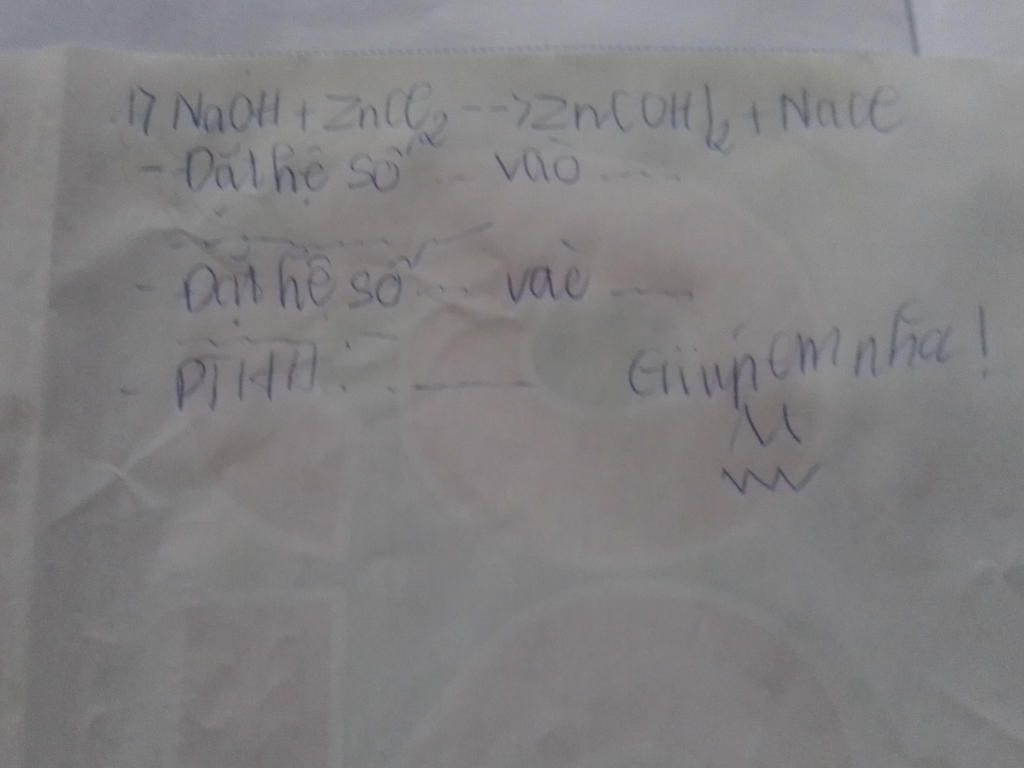 1) NaOH + ZnCl2 --> Zn(OH)2 + NaCl
- Đặt hệ số ... vào .....
- Đặt hệ số ... vào .....
- PTHH: ..
Giúp em nha!